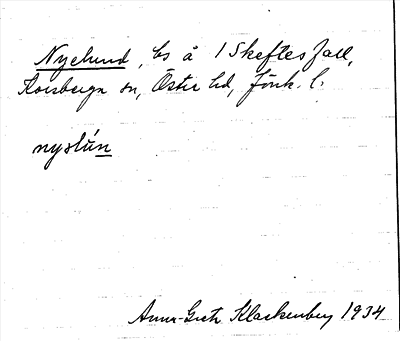 Nyelund, bs å 1 Skeftesfall,
Korsberga sn, Östra hd, Jönk. l.
nyəlún
Anna-Greta Klackenberg 1934